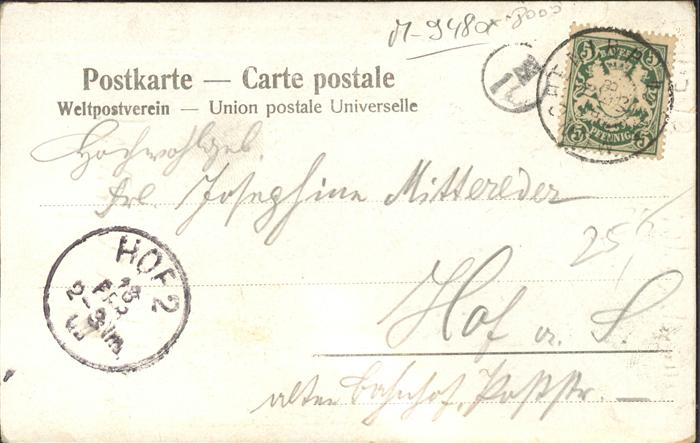 M-948
Postkarte — Carte postale
Weltpostverein — Union postale Universelle
5 BAYERN 5
5 PFENNIG 5
Hochwohlgeb.
Frl. Josephine Mittereder
25
Hof a. S.
alter Bahnhof, Poststr. —
HOF 2
18
FEB
2-3 Nm.